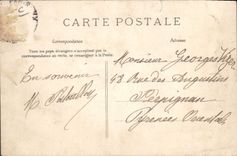 CARTE POSTALE
Correspondance
Adresse
Tous les pays étrangers n'acceptent pas la
correspondance au recto, se renseigner à la Poste.
Monsieur Georges
42 Rue des Augustins
En souvenir
Perpignan
Pyrénées Orientales